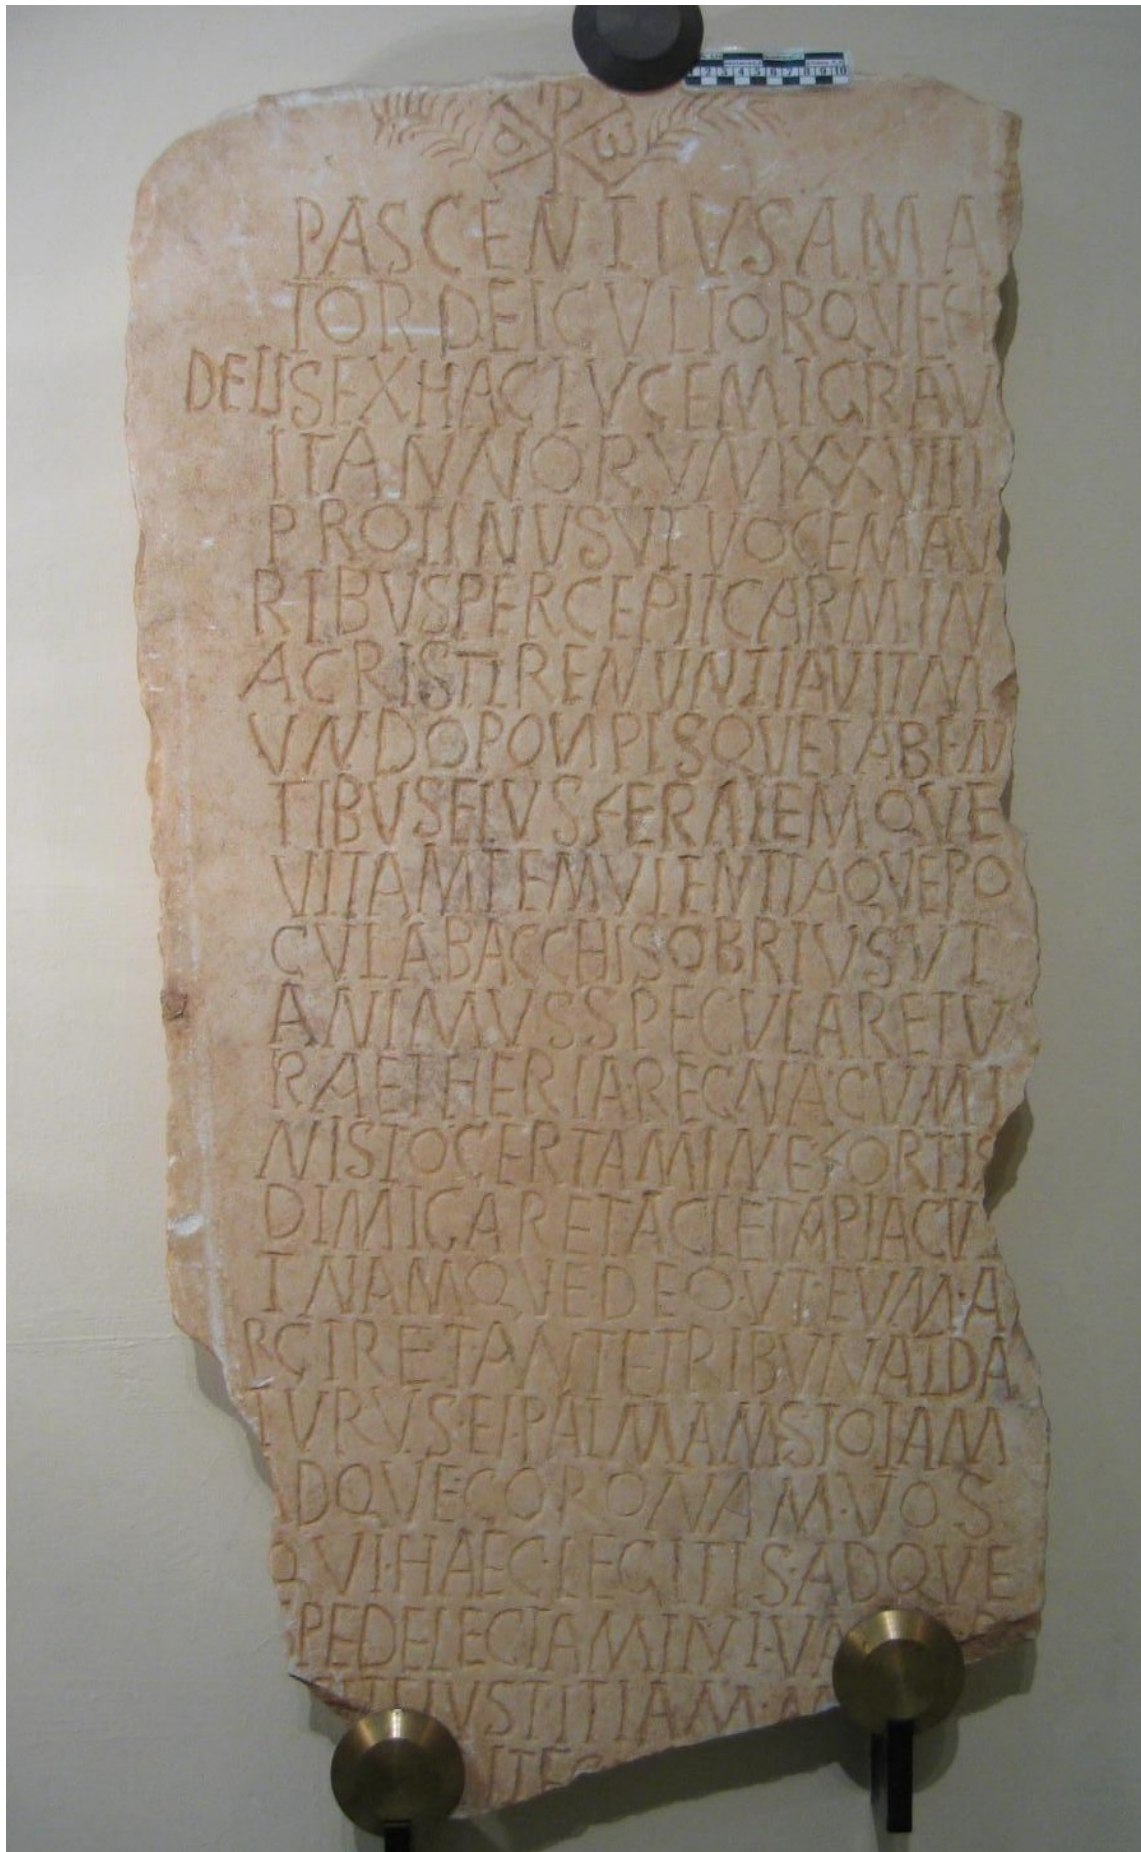 α ☧ ω
PASCENTIVSAMA
TORDEICVLTORQVEFI
DELISEXHACLVCEMIGRAV
ITANNORVMXXVIIII
PROTINVSVTVOCEMAV
RIBVSPERCEPITCARMIN
ACRISTIRENVNTIAVITM
VNDOPOMPISQVELABEN
TIBVSEIVSFERALEMQVE
VITAMTEMVLENTIAQVEPO
CVLABACCHISOBRIVSVT
ANIMVSSPECVLARETV
RAETHERIAREGNACVMI
NISTOCERTAMINEFORTIS
DIMICARETAGLETMPIACVI
TNAMQVEDEO·VT·EVM·A
RCIRETANTETRIBVNALDA
TVRVS·EI·PALMAMSTOLAM
ADQVECORONAM·VOS
QVI·HAEC·LEGITIS·ADQVE
SPEDELECTAMINI·
IVSTITIAM·